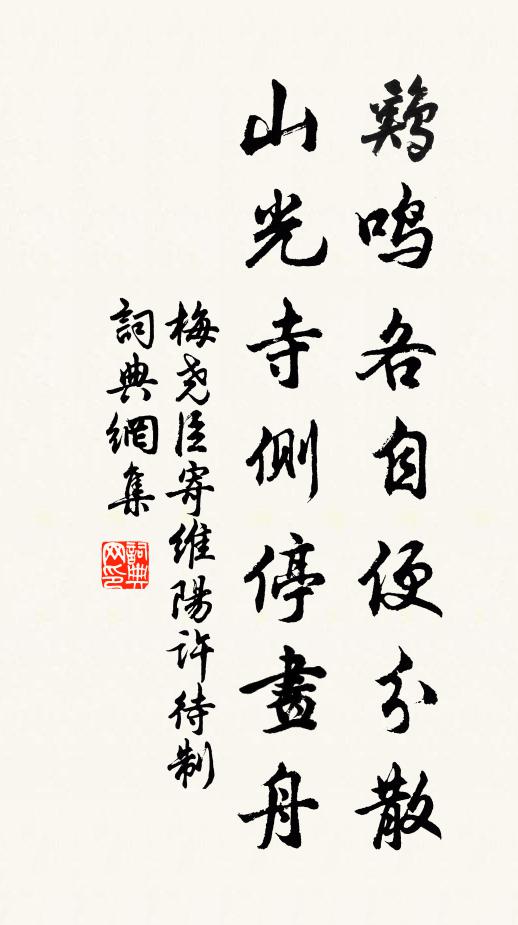 鷄鳴各自便分散
山光寺側停畫舟
梅尭臣寄維陽許待制
詞典網集
詞典網印